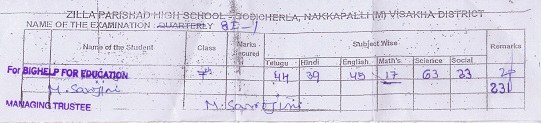 ZILLA PARISHAD HIGH SCHOOL - GODICHERLA, NAKKAPALLI (M) VISAKHA DISTRICT
NAME OF THE EXAMINATION : QUARTERLY
Name of the Student Class Marks Secured Subject Wise Remarks
Telugu Hindi English Math's Science Social
For BIGHELP FOR EDUCATION 44 39 45 17 63 23
M. Sarojini M. Sarojini 231
MANAGING TRUSTEE